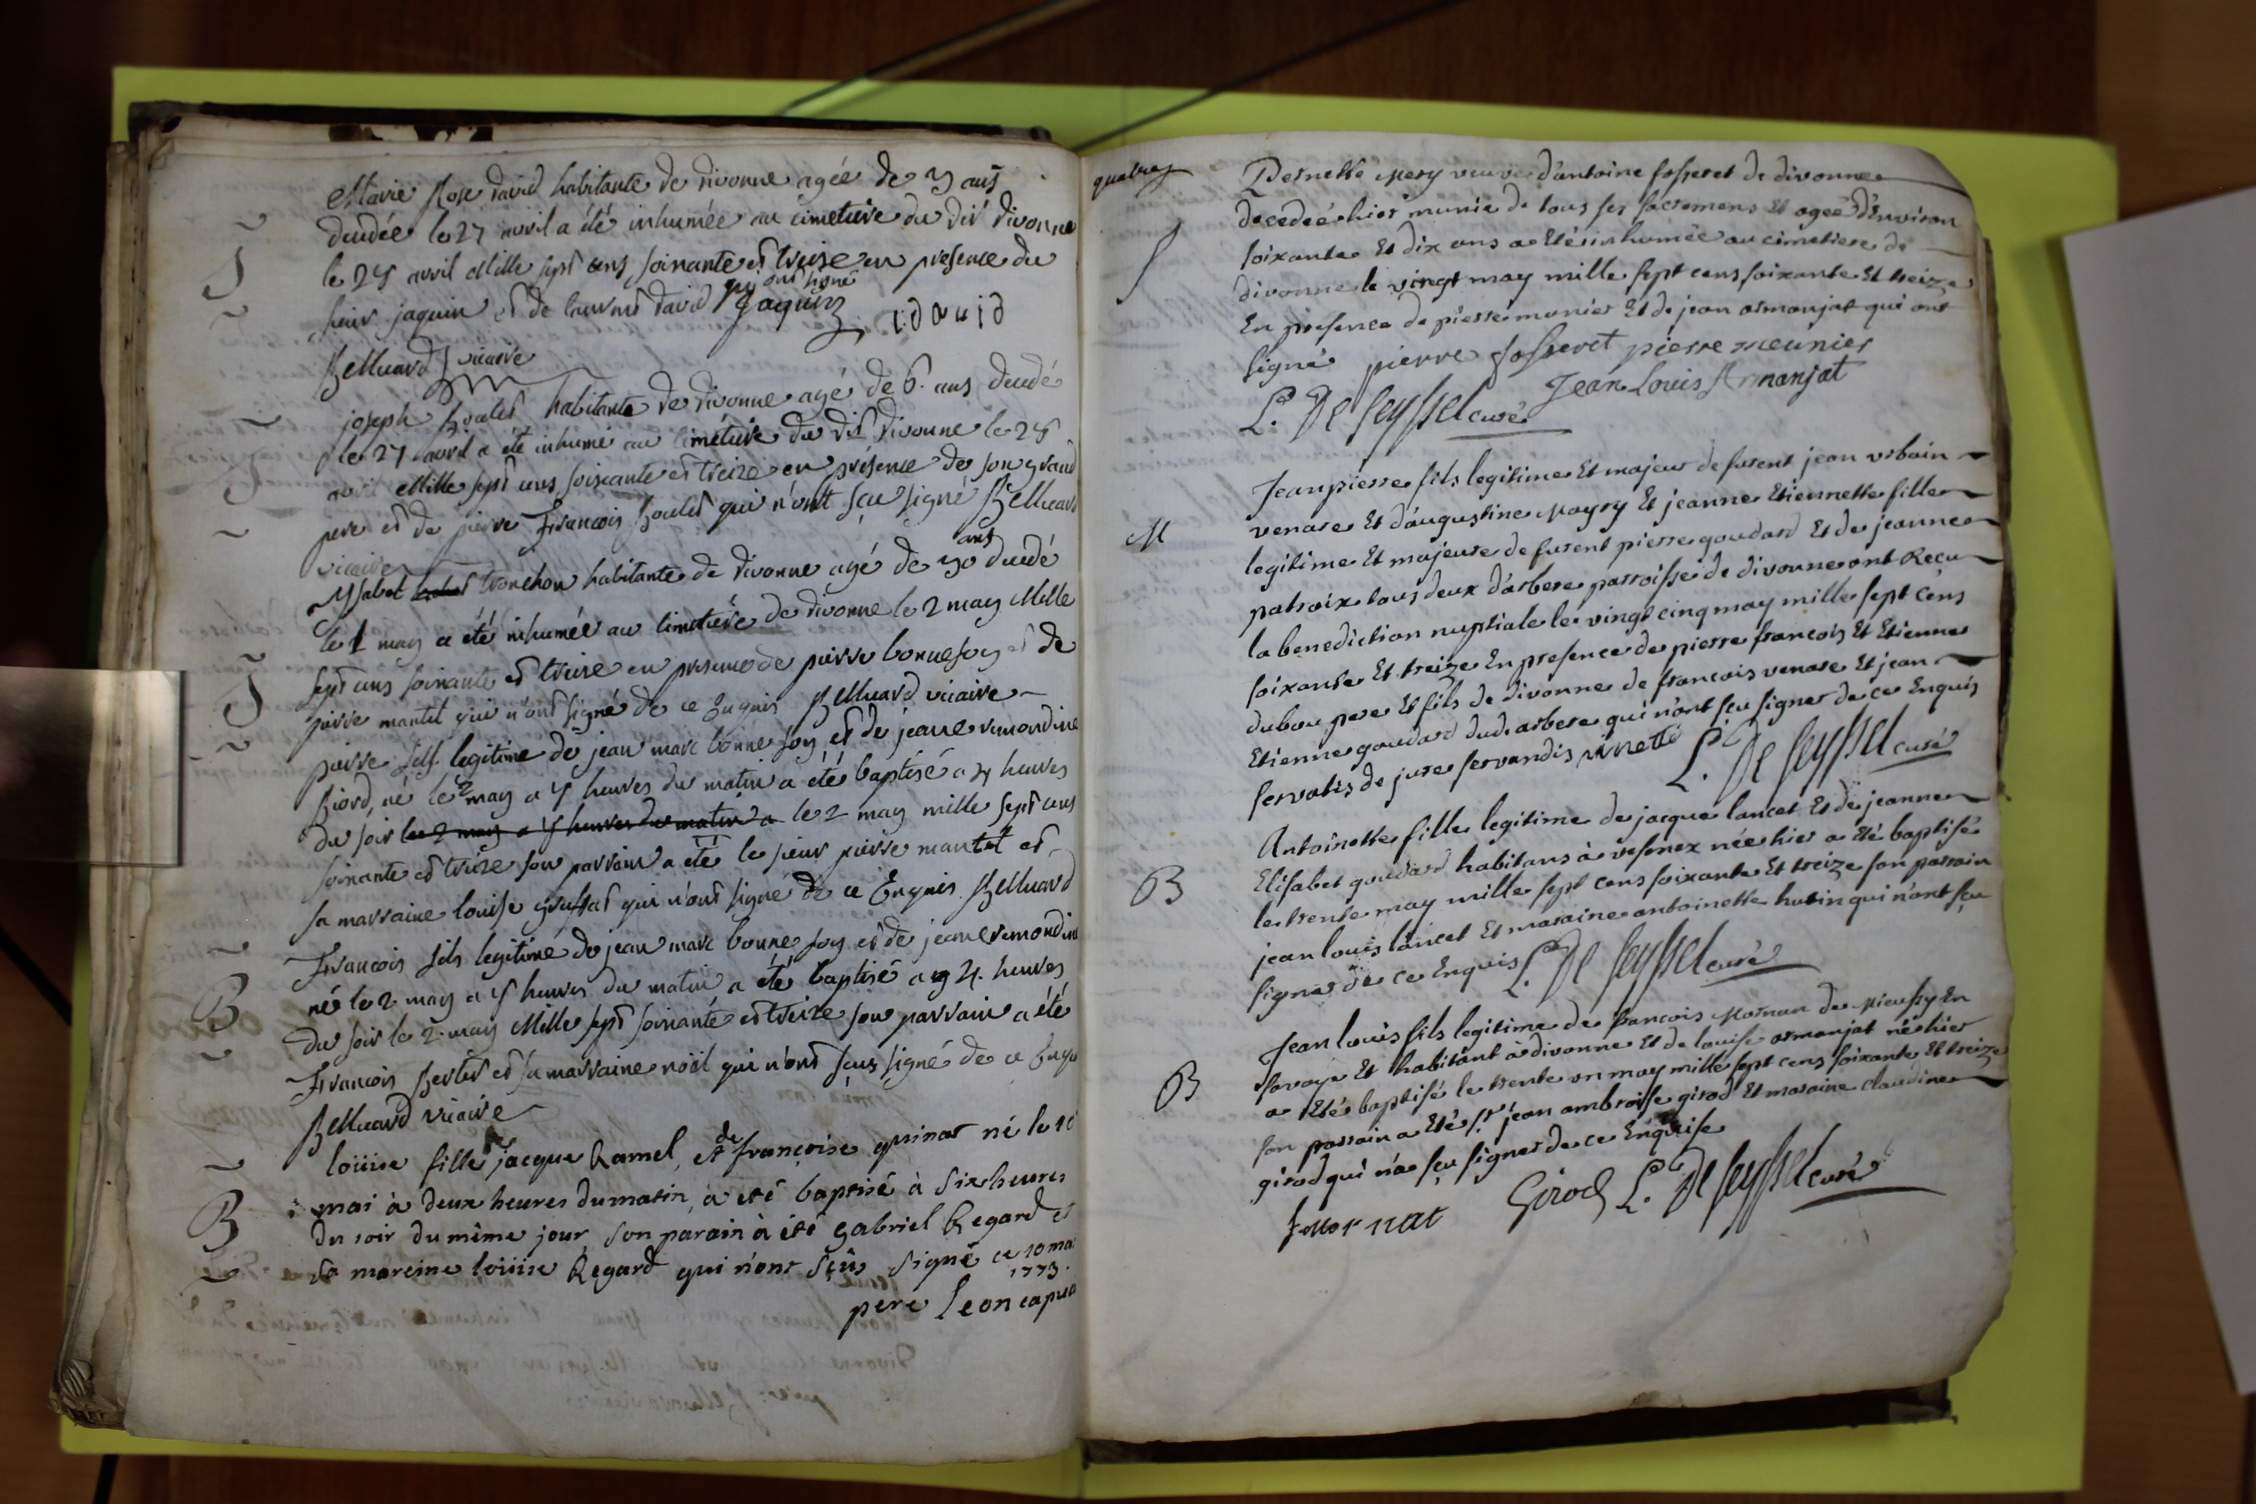 Marie Rose david habitante de divonne agée de 3 ans
decedée le 27 avril a été inhumée au cimetiere du dit divonne
S
le 28 avril Mille sept cens soixante et treize en presence du
sieur jaquin et de laurent david qui ont signé
Jaquin david
Belluard vicaire
joseph habitante de divonne agé de 6 ans decedé
le 27 avril a été inhumé au cimetiere du dit divonne le 28
S
avril Mille sept cens soixante et treize en présence de son grand
pere et de pierre françois qui n'ont sçu signé Belluard
vicaire
Ysabet tronchon habitante de divonne agé de 30 ans decedé
le 1 may a été inhumée au cimetiere de divonne le 2 may Mille
S
sept cens soixante et treize en presence de pierre bonnefoy et de
pierre mantet qui n'ont signé de ce Enquis Belluard vicaire
pierre fils legitime de jean marc bonne foy et de jeane remondine
né le 2 may a 5 heures du matin a été baptisé a 4 heures
du soir le 2 may a 5 heures du matin a le 2 may mille sept cens
soixante et treize son parrain a été le sieur pierre mantet et
sa marraine louise qui n'ont signé de ce Enquis Belluard
françois fils legitime de jean marc bonne foy et de jeane remondine
B
né le 2 may a 5 heures du matin a été baptisé a 4 heures
du soir le 2 may Mille sept soixante et treize son parrain a été
françois et sa marraine noël qui n'ont sçus signé de ce Enqu
Belluard vicaire
loüise fille de jacque Ramel, et de françoise quinat né le 10
mai à deux heures du matin, à été baptisé à six heures
B
du soir du même jour, son parain à été gabriel Regard et
sa mareine loüise Regard qui n'ont sçûs signé ce 10 mai
1773.
pere leon capu
quatre
Pernette Mery veuve d'antoine fosseret de divonne
decedeé hier munie de tous ses sacremens et ageé d'Environ
S
soixante Et dix ans a Eté inhumée au cimetiere de
divonne le vingt may mille sept cens soixante Et treize
En presence de pierre munier Et de jean armanjat qui ont
signé pierre fosseret pierre meunier
Jean Louis Armanjat
L. De Seyssel curé
Jean pierre fils legitime Et majeur de furent jean urbain
M
venare Et d'augustine Et jeanne Etiennette fille
legitime Et majeure de furent pierre goudard Et de jeanne
patroix tous deux d'arbere parroisse de divonne ont Reçu
la benediction nuptiale le vingt cinq may mille sept cens
soixante Et treize En presence de pierre francois Et Etienne
dubou pere Et fils de divonne de francois venare Et jean
Etienne goudard dud. arbere qui n'ont sçu signer de ce Enquis
servatis de jure servandis vinette L. De Seyssel curé
Antoinette fille legitime de jacque lancet Et de jeanne
B
Elisabet goudard habitans à vesenex née hier a Eté baptisé
le trente may mille sept cens soixante Et treize son parrain
jean louis lancet Et maraine antoinette hutin qui n'ont sçu
signer de ce Enquis L. De Seyssel curé
Jean louis fils legitime de francois Mornan de Mieussy En
B
savoye Et habitant à divonne Et de louise armanjat né hier
a Eté baptisé le trente un may mille sept cens soixante Et treize
son parrain a Eté Sr. jean ambroise girod Et maraine claudine
girod qui n'a sçu signer de ce Enquise
Girod L. De Seyssel curé